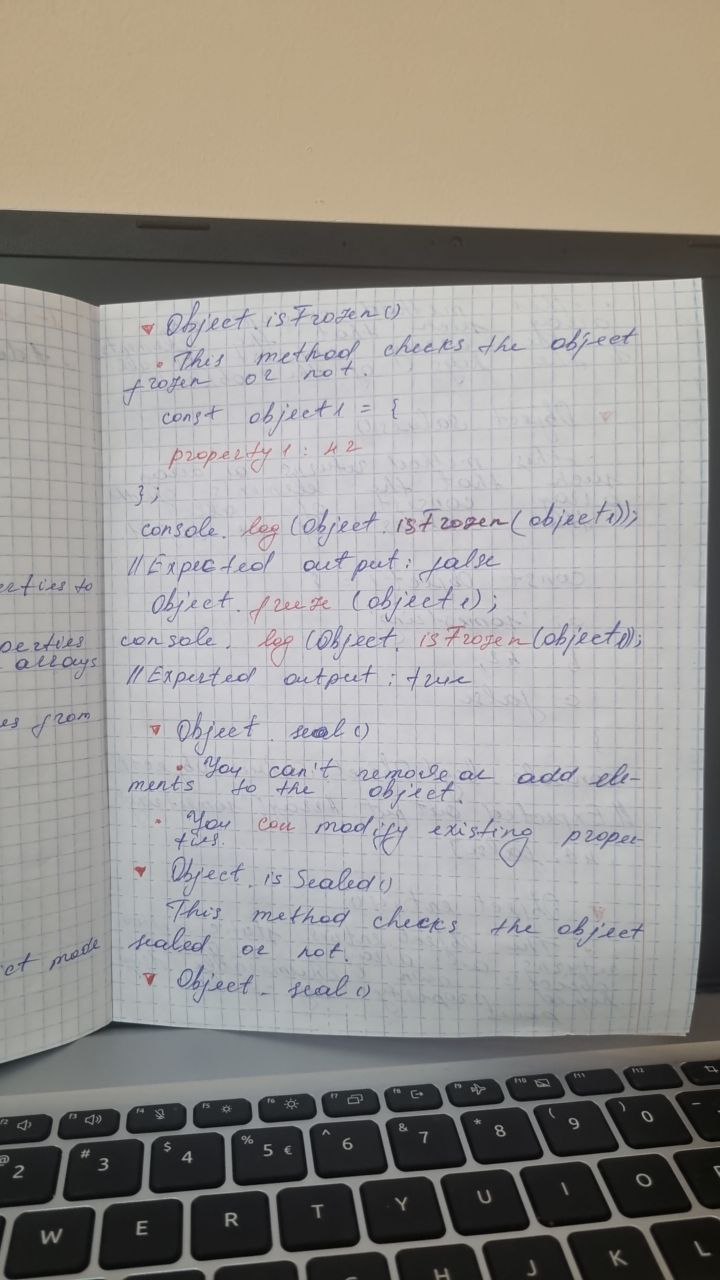 erties to
perties
arrays
es from
ect mode
▾ Object.isFrozen()
• This method checks the object
frozen or not.
const object1 = {
property1 : 42
};
console.log(Object.isFrozen(object1));
//Expected output: false
Object.freeze(object1);
console.log(Object.isFrozen(object1));
//Experted output: true
▾ Object.seal()
• You can't remove or add ele-
ments to the object.
• You can modify existing proper-
ties.
▾ Object.isSealed()
This method checks the object
sealed or not.
▾ Object.seal()
F2
F3
F4
F5
F6
F7
F8
F9
F10
F11
F12
@ 2
# 3
$ 4
% 5 €
^ 6
& 7
* 8
( 9
) 0
W E R T Y U I O
H J K L